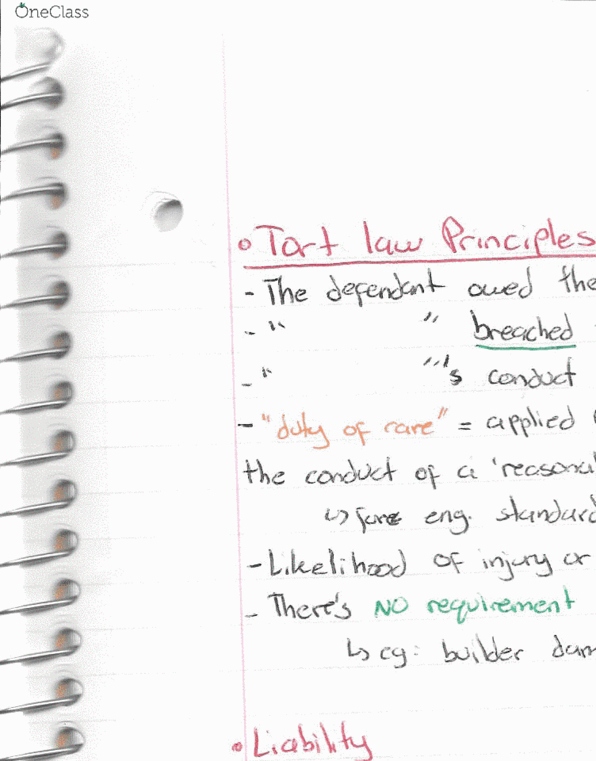 OneClass
• Tort law Principles
- The defendant owed the
- " " breached
- " "'s conduct
- "duty of care" = applied
the conduct of a 'reasona
↳ eng. standard
- Likelihood of injury or
- There's NO requirement
↳ eg: builder dam
• Liability